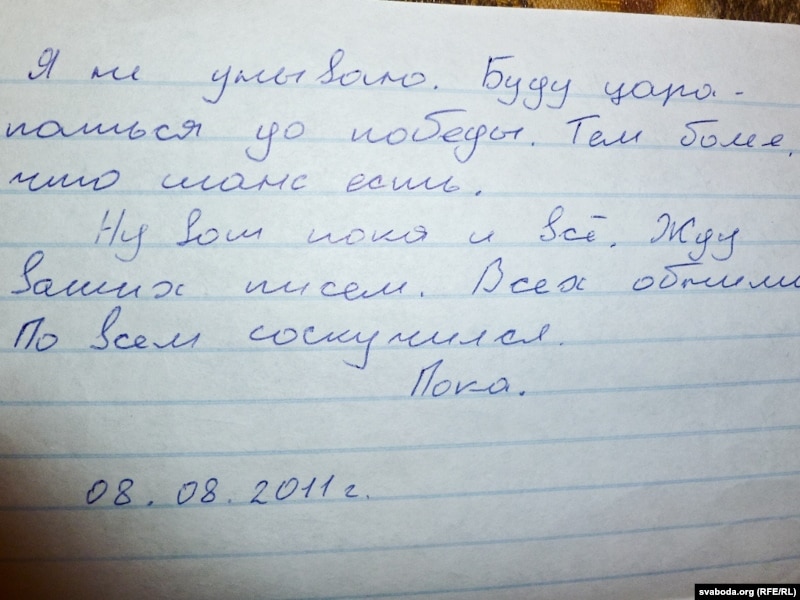 Я не унываю. Буду цара-
паться до победы. Тем более,
что шанс есть.
Ну вот пока и всё. Жду
Ваших писем. Всех обними
По всем соскучился.
Пока.
08.08.2011г.
svaboda.org (RFE/RL)